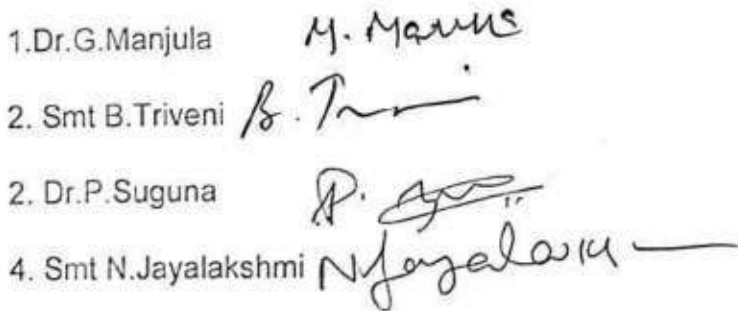 1.Dr.G.Manjula M. Manju
2. Smt B.Triveni B. T
2. Dr.P.Suguna P.
4. Smt N.Jayalakshmi N Jayalaxm